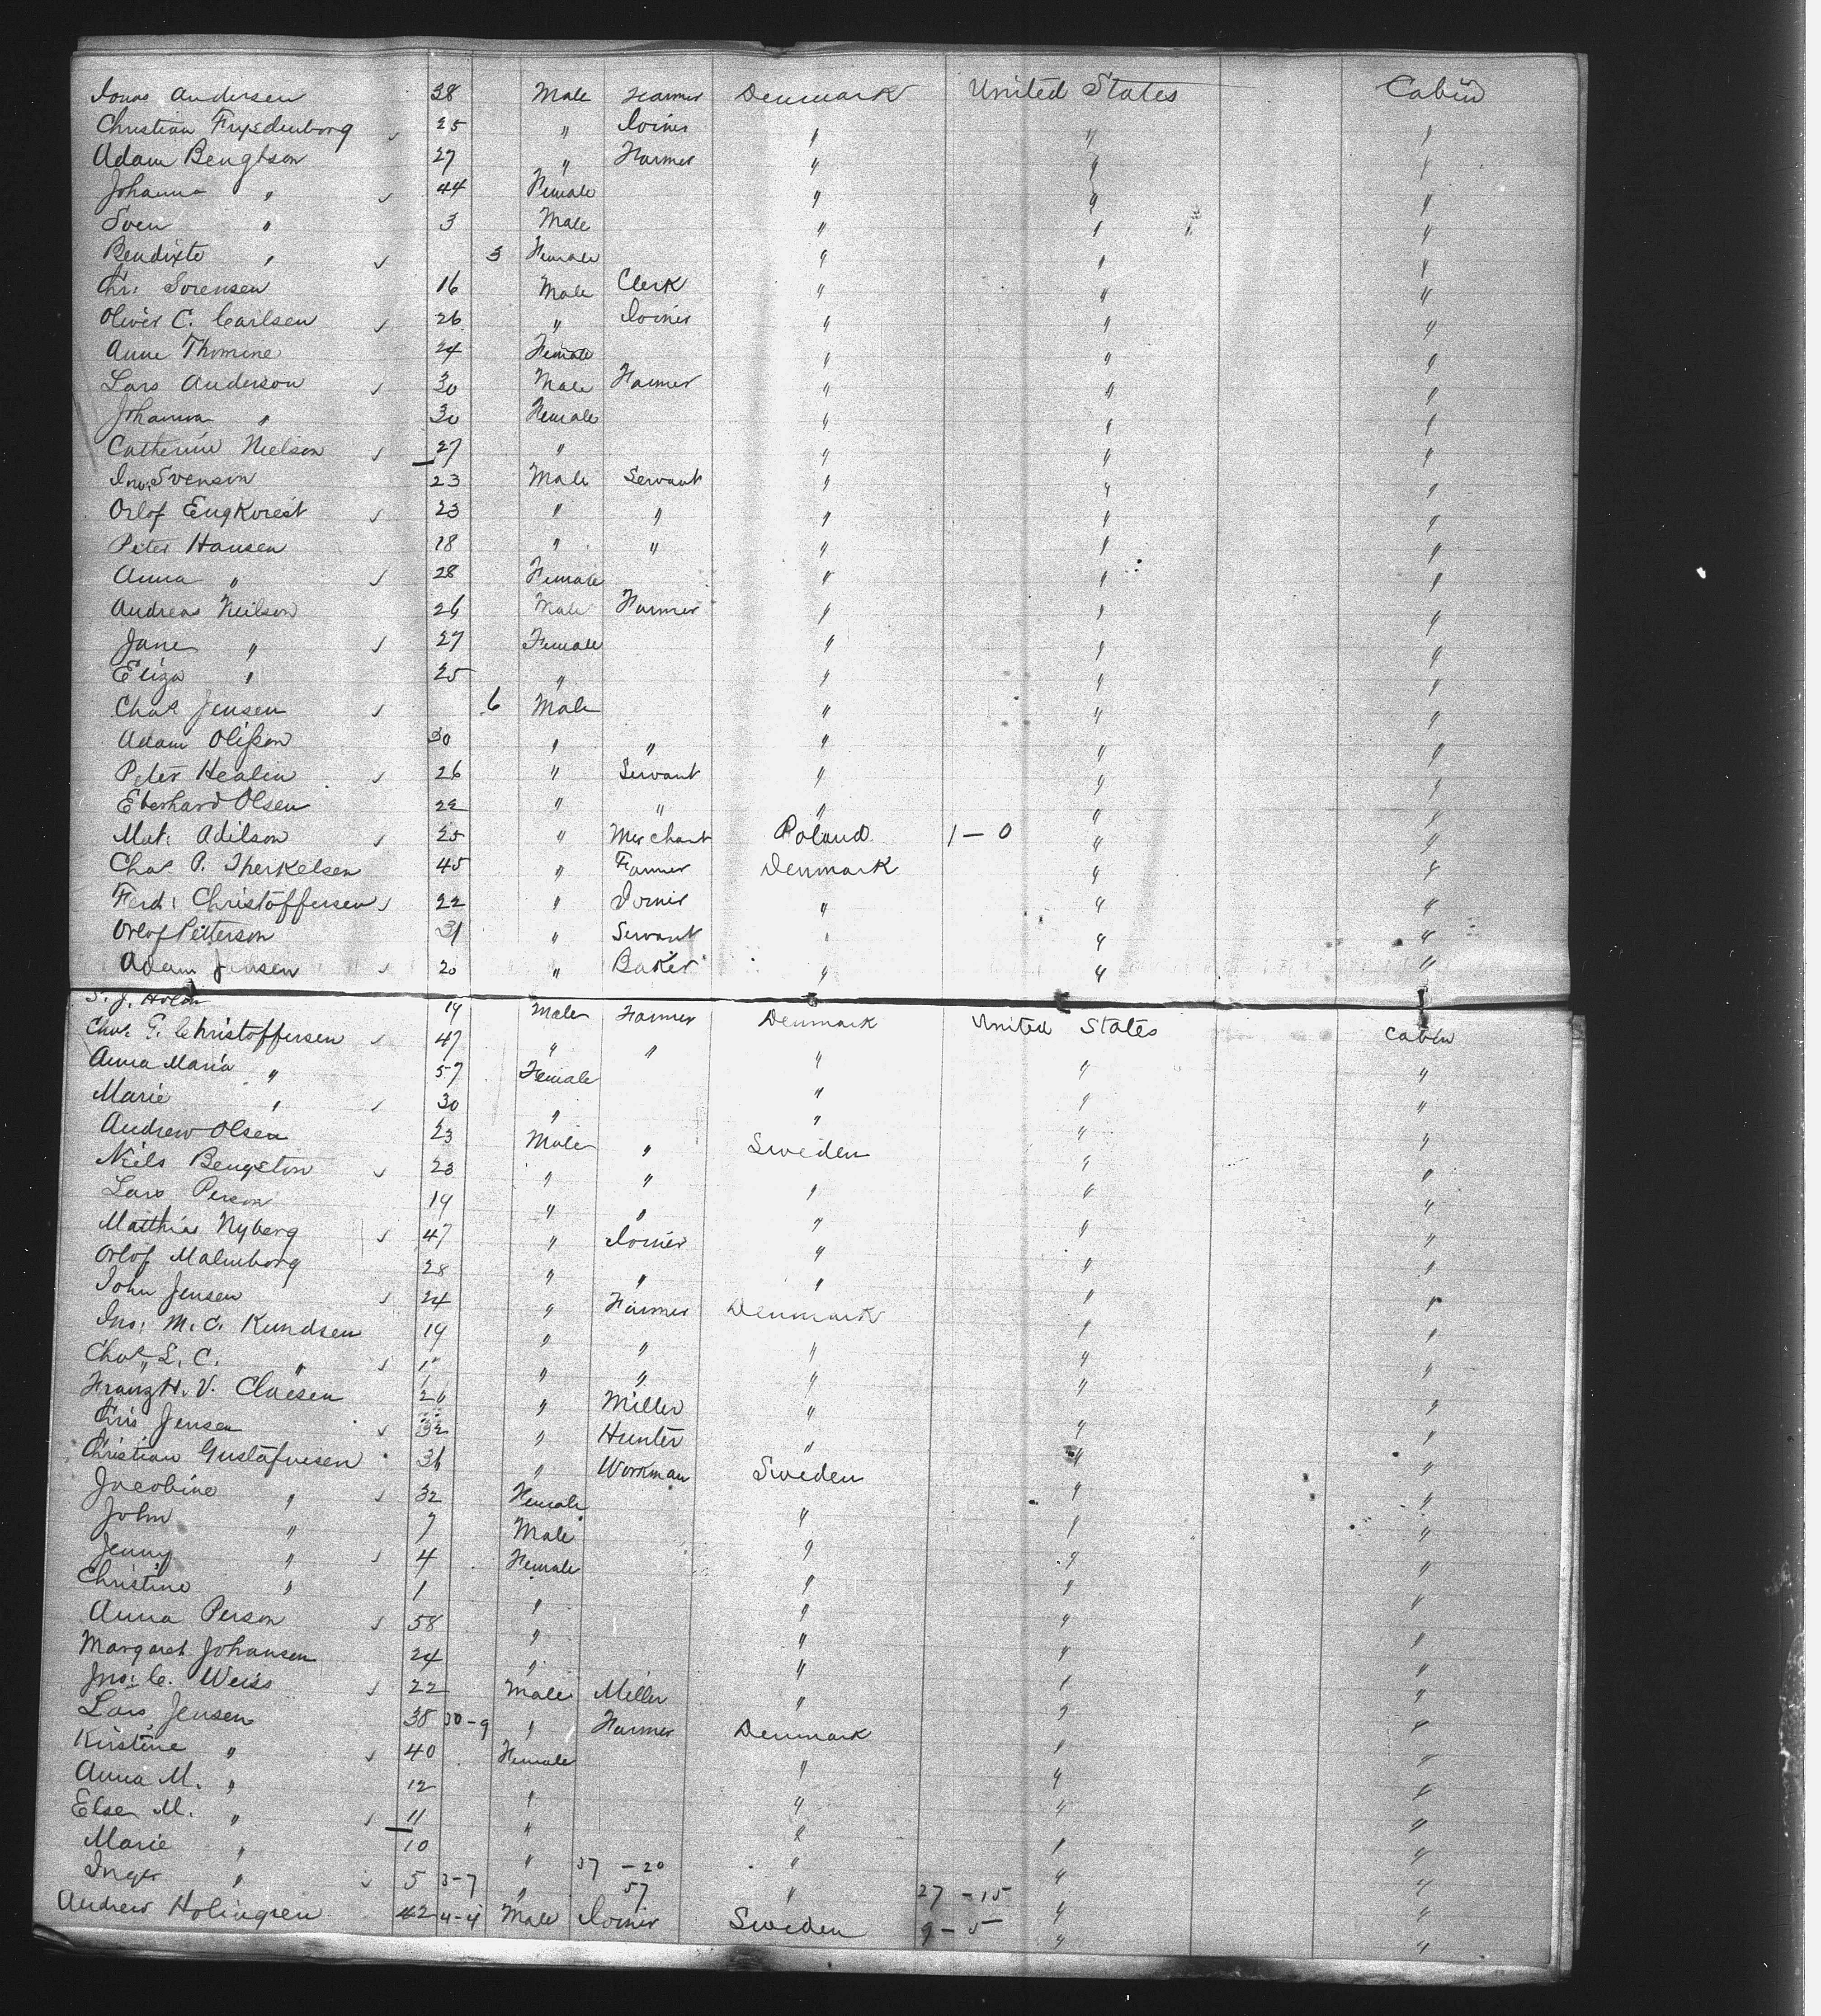 Jonas Andersen 38 Male Farmer Denmark United States Cabin
Christian Frysdenborg 25 " Joiner " " "
Adam Bengtson 27 " Farmer " " "
Johanna " 44 Female " " "
Sven " 3 Male " " "
Bendixte " 3 Female " " "
Chr: Sorensen 16 Male Clerk " " "
Oliver C. Carlsen 26 " Joiner " " "
Anne Thomine 24 Female " " "
Lars Anderson 30 Male Farmer " " "
Johanna " 30 Female " " "
Catherine Nielson 27 " " " "
Jno: Svenson 23 Male Servant " " "
Orlof Engkvrest 23 " " " " "
Peter Hansen 18 " " " " "
Anna " 28 Female " " "
Andreas Neilson 26 Male Farmer " " "
Jane " 27 Female " " "
Eliza " 25 " " " "
Chas Jensen 6 Male " " "
Adam Olifson 30 " " " " "
Peter Healin 26 " Servant " " "
Eberhard Olsen 22 " " " " "
Mat: Adilson 25 " Merchant Poland 1 – 0 " "
Chas P. Therkelsen 45 " Farmer Denmark " "
Ferd: Christoffersen 22 " Joiner " " "
Orlof Petterson 31 " Servant " " "
Adam Jensen 20 " Baker " " "
S. J. Holm 19 Male Farmer Denmark United States Cabin
Chas G. Christoffersen 47 " " " " "
Anna Maria " 57 Female " " "
Marie " 30 " " " "
Andrew Olsen 23 Male " Sweden " "
Niels Bengston 23 " " " " "
Lars Person 19 " " " " "
Matthias Nyberg 47 " Joiner " " "
Orlof Malmborg 28 " " " " "
John Jensen 24 " Farmer Denmark " "
Jno: M. C. Kundsen 19 " " " " "
Chas L. C. " " " " " "
Franz H. V. Claesen 26 " Miller " " "
Chris Jensen 32 " Hunter " " "
Christian Gustafvesen 36 " Workman Sweden " "
Jacobine " 32 Female " " "
John " 7 Male " " "
Jenny " 4 Female " " "
Christine " 1 " " " "
Anna Person 58 " " " "
Margaret Johansen 24 " " " "
Jno: C. Weiss 22 Male Miller " " "
Lars Jensen 38 30-9 " Farmer Denmark " "
Kirstine " 40 Female " " "
Anna M. " 12 " " " "
Else M. " 11 " " " "
Marie " 10 " 37 – 20 " " "
Inger " 5 3-7 " 57 " 27 – 15 " "
Andrew Holingren 42 4-4 Male Joiner Sweden 9 – 5 " "